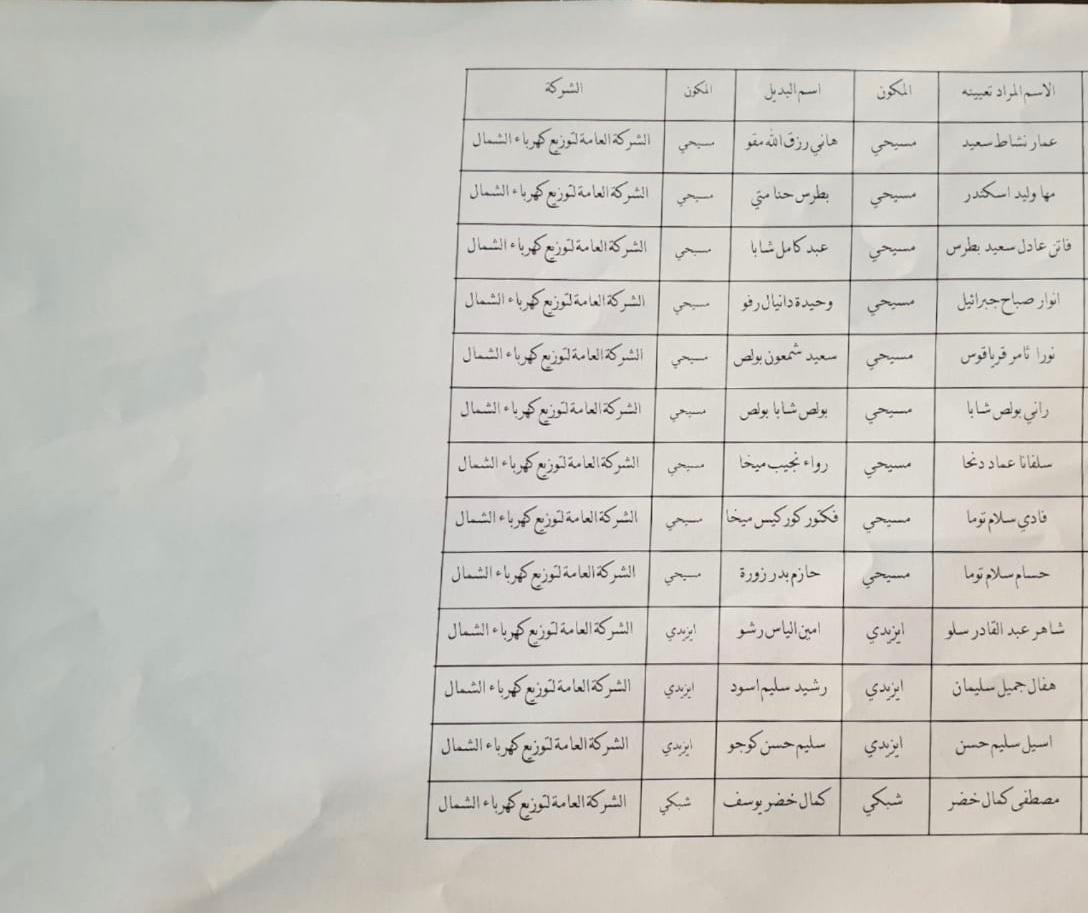 الاسم المراد تعيينه المكون اسم البديل المكون الشركة
عمار نشاط سعيد مسيحي هاني رزق الله مقو مسيحي الشركة العامة لتوزيع كهرباء الشمال
مها وليد اسكندر مسيحي بطرس حنا متي مسيحي الشركة العامة لتوزيع كهرباء الشمال
فاتن عادل سعيد بطرس مسيحي عبد كامل شابا مسيحي الشركة العامة لتوزيع كهرباء الشمال
انوار صباح جبرائيل مسيحي وحيدة دانيال رفو مسيحي الشركة العامة لتوزيع كهرباء الشمال
نورا ثامر قرياقوس مسيحي سعيد شمعون بولص مسيحي الشركة العامة لتوزيع كهرباء الشمال
راني بولص شابا مسيحي بولص شابا بولص مسيحي الشركة العامة لتوزيع كهرباء الشمال
سلفانا عماد دنحا مسيحي رواء نجيب ميخا مسيحي الشركة العامة لتوزيع كهرباء الشمال
فادي سلام توما مسيحي فكتور كوركيس ميخا مسيحي الشركة العامة لتوزيع كهرباء الشمال
حسام سلام توما مسيحي حازم بدر زورة مسيحي الشركة العامة لتوزيع كهرباء الشمال
شاهر عبد القادر سلو ايزيدي امين الياس رشو ايزيدي الشركة العامة لتوزيع كهرباء الشمال
هفال جميل سليمان ايزيدي رشيد سليم اسود ايزيدي الشركة العامة لتوزيع كهرباء الشمال
اسيل سليم حسن ايزيدي سليم حسن كوجو ايزيدي الشركة العامة لتوزيع كهرباء الشمال
مصطفى كمال خضر شبكي كمال خضر يوسف شبكي الشركة العامة لتوزيع كهرباء الشمال